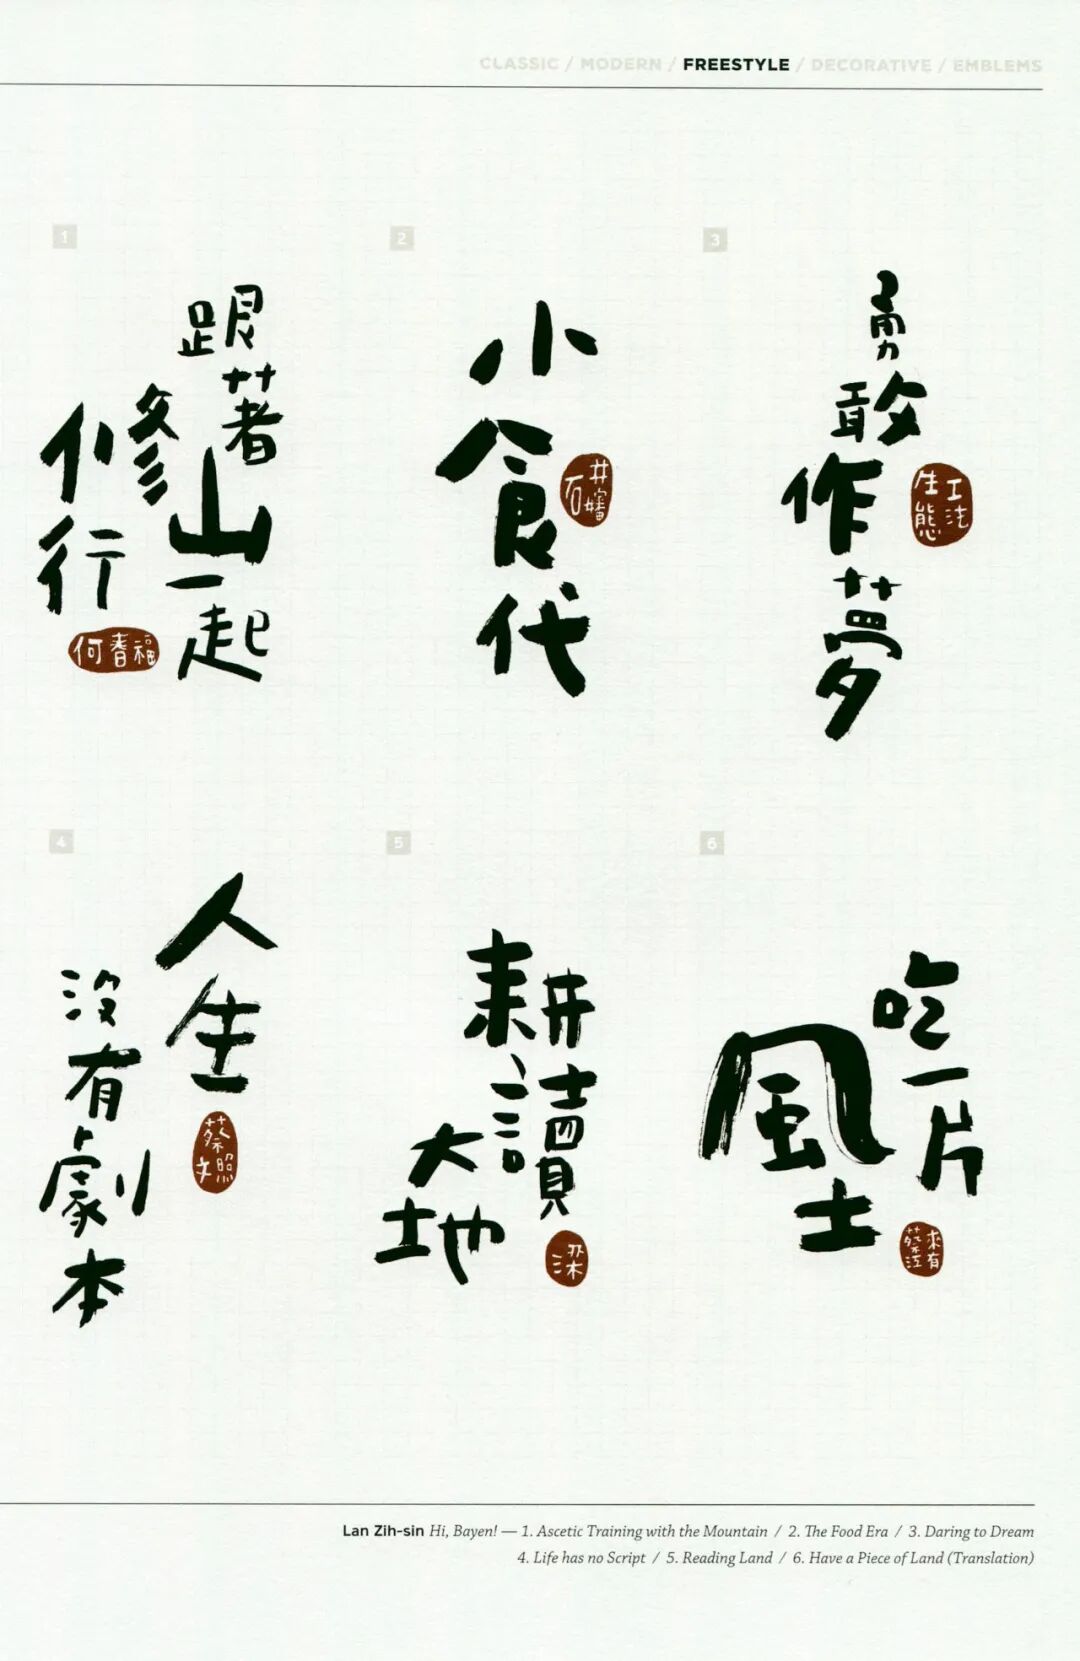 CLASSIC / MODERN / FREESTYLE / DECORATIVE / EMBLEMS
1
跟著山一起
修行
何春福
2
小食代
石井
3
勇敢作夢
生態工法
4
人生
沒有劇本
蔡照文
5
耕讀
大地
深
6
吃一片
風土
來有
Lan Zih-sin Hi, Bayen! — 1. Ascetic Training with the Mountain / 2. The Food Era / 3. Daring to Dream
4. Life has no Script / 5. Reading Land / 6. Have a Piece of Land (Translation)